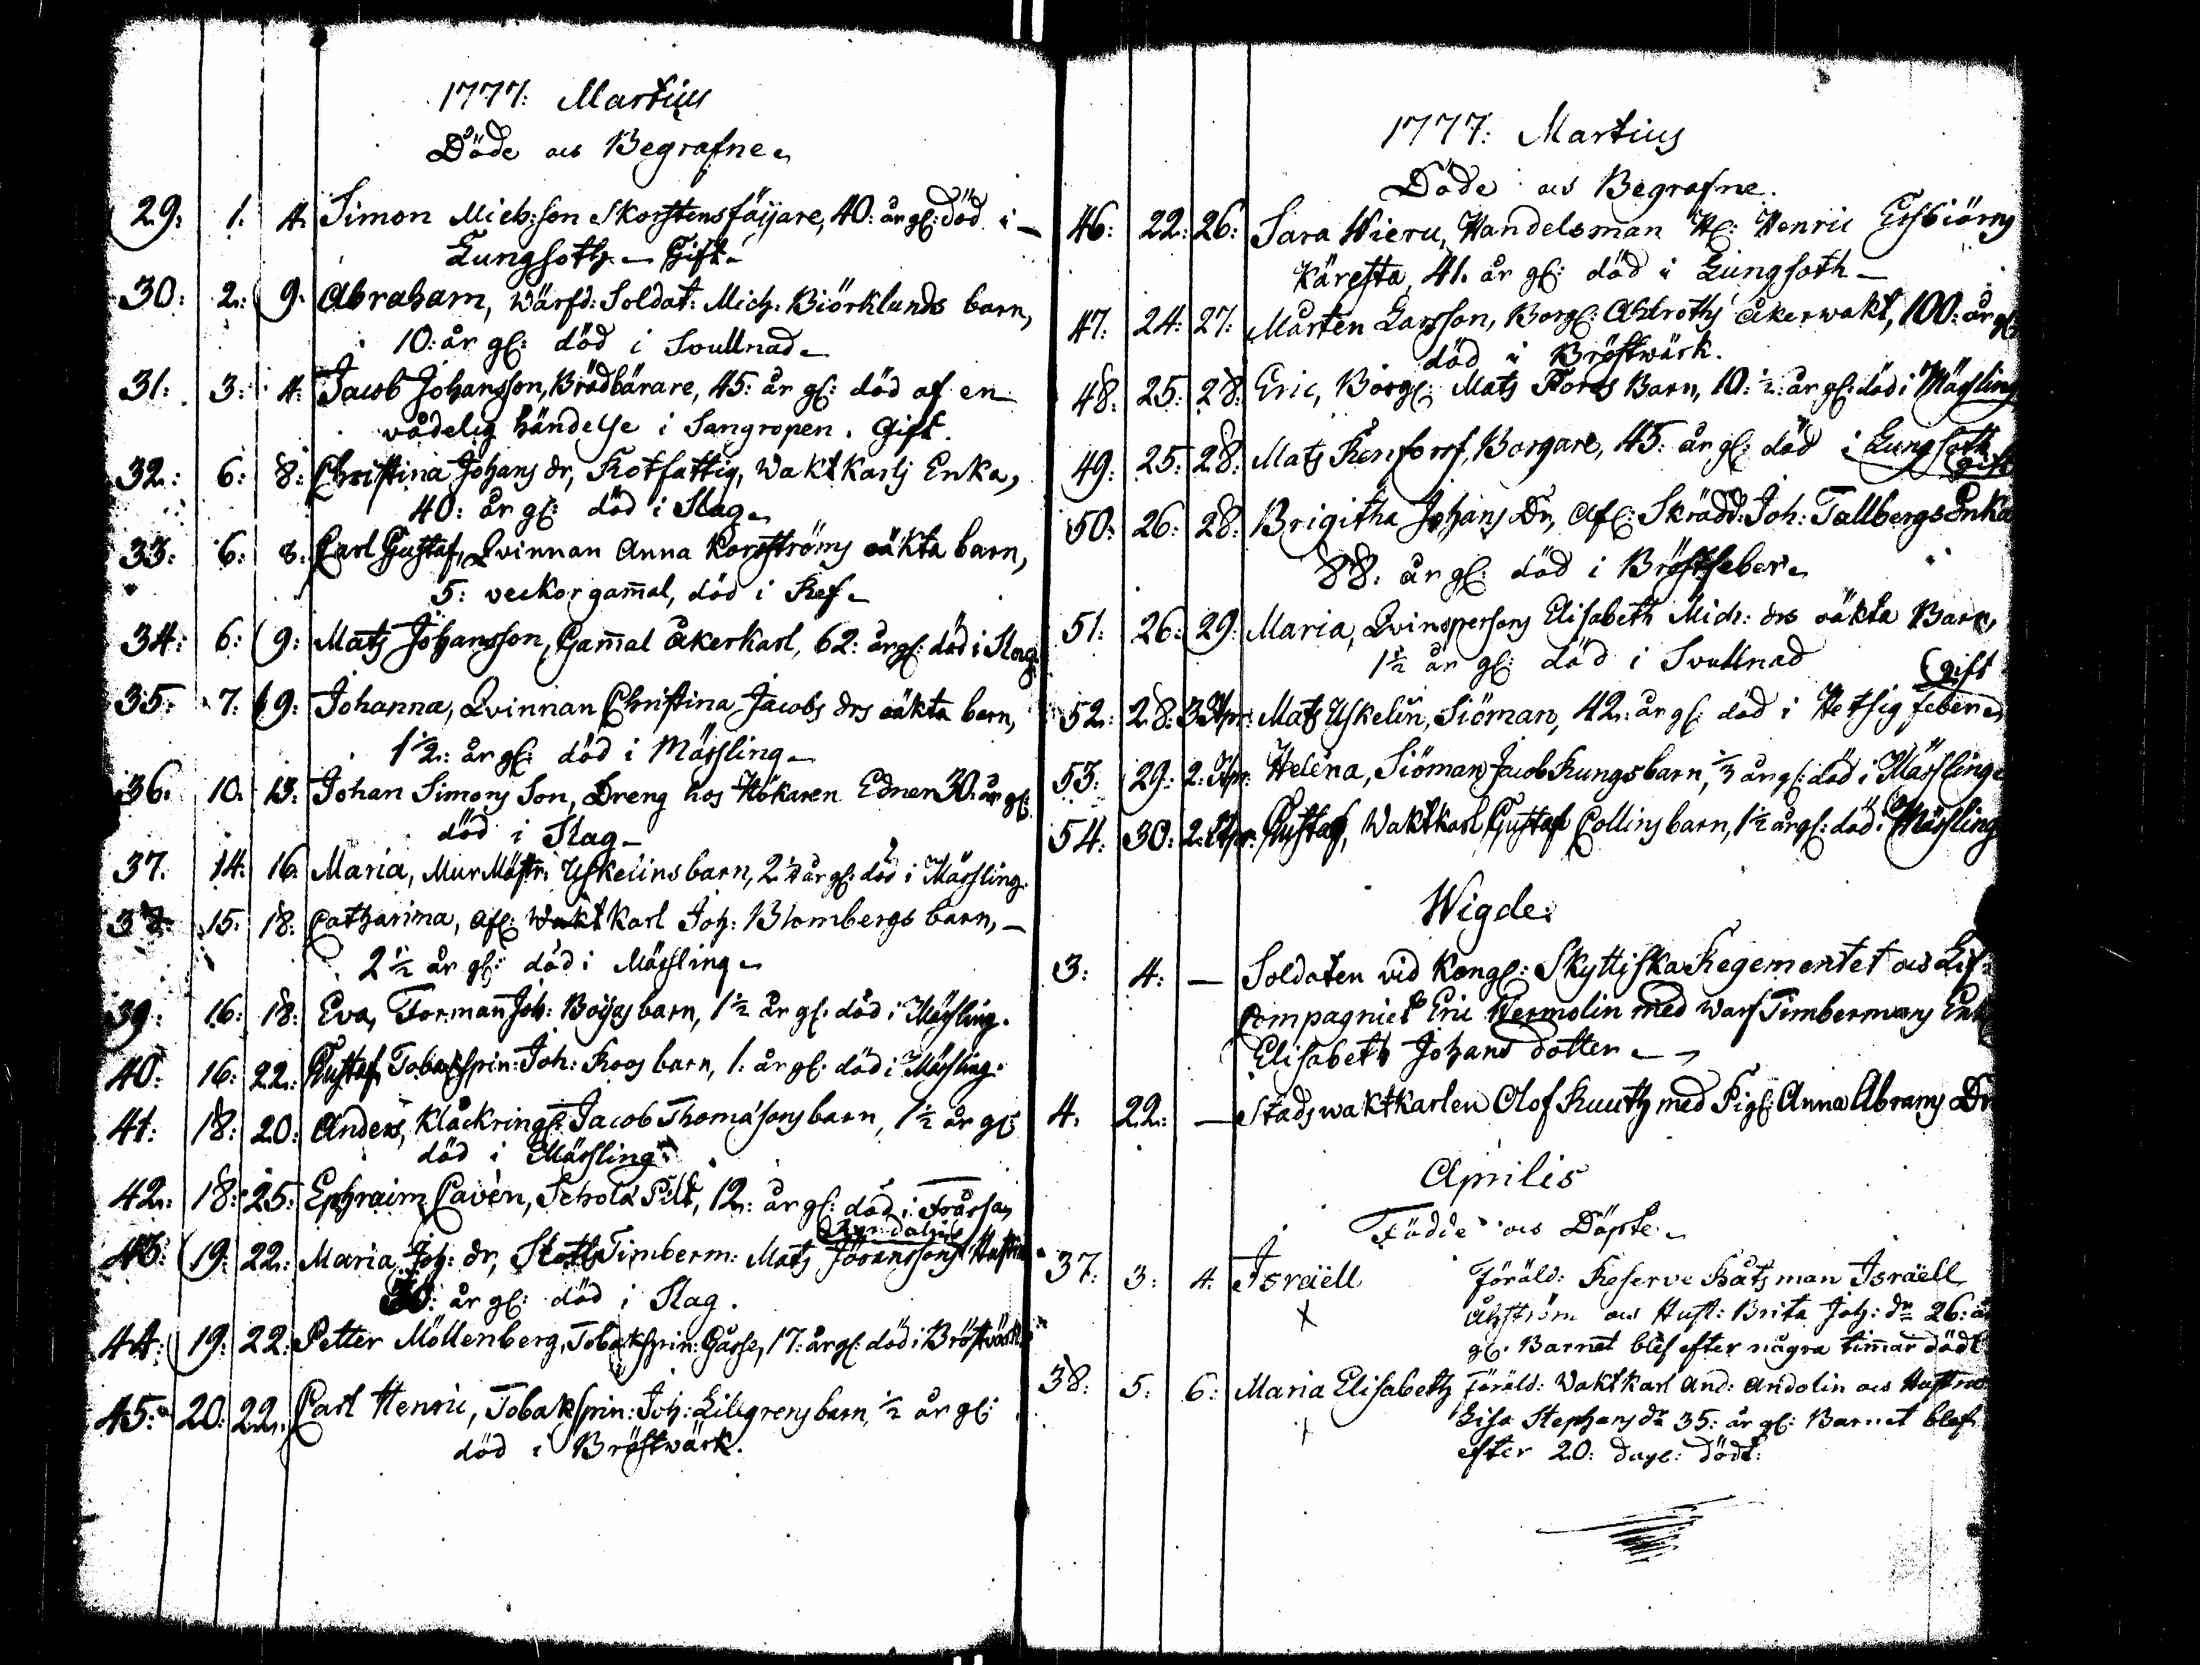 1777: Martius
Döde och Begrafne
29: 1. 4. Simon Mich:son Skorstensfäijare, 40: år gl: död i
Lungsoth. Gift.
30: 2: 9. Abraham, Wärfd: Soldat: Mich. Biörklunds barn,
10: år gl: död i Svullnad
31: 3: 4: Jacob Johansson, Brödbärare, 45: år gl: död af en
vådelig händelse i Sangropen. Gift.
32: 6: 8: Christina Johans dr, Rotfattig, Waktkarls Enka,
40: år gl: död i Slag
33: 6: 8: Carl Gustaf, Qvinnan Anna Korsströms oäkta barn,
5: veckor gam̄al, död i Ref
34: 6: 9: Mats Johansson, Gam̄al åkerkarl, 62: år gl: död i Slag
35: 7: 9: Johanna, Qvinnan Christina Jacobs drs oäkta barn,
1½: år gl: död i Mässling
36. 10. 13. Johan Simons Son, Dreng hos Hökaren Edner 30: år gl:
död i Slag
37. 14: 16. Maria, MurMästr: Uskelins barn, 2¼ år gl: död i Mässling.
38 15: 18: Catharina, Afl: Waktkarl Joh: Blombergs barn,
2½ år gl: död i Mässling
39: 16: 18: Eva, Forman Joh: Boijes barn, 1½ år gl: död i Mässling.
40: 16: 22: Gustaf, Tobakspin: Joh: Roos barn, 1: år gl: död i Mässling.
41: 18: 20: Anders, Klåckring: Jacob Thomæsons barn, 1½ år gl:
död i Mässling
42: 18: 25: Ephraim Cavén, Schola Pilt, 12: år gl: död i Frässan
43: 19: 22: Maria Joh: dr, Timberm: Mats Jöranssons Hustru
30: år gl: död i Slag.
44: 19: 22: Petter Möllenberg, Tobakspin: Gåsse, 17: år gl: död i Bröstwärk
45: 20: 22: Carl Henric, Tobakspin: Joh: Liligrens barn, ½ år gl:
död i Bröstwärk.
1777: Martius
Döde och Begrafne.
46: 22: 26: Sara Wieru, Handelsman Hl: Henric Essbiörns
Käresta, 41. år gl: död i Lungsoth
47: 24: 27: Mårten Larsson, Borgl: Ahlroths åkerwakt, 100: år gl:
död i Bröstwärk.
48: 25: 28: Eric, Borgl: Mats Fors Barn, 10:½: år gl: död i Mässling
49: 25: 28: Mats Renfors, Borgare, 45: år gl: död i Lungsoth
gift
50: 26: 28: Brigitha Johans Dr, Afl: Skrädd: Joh: Tallbergs Enka
88: år gl: död i Bröstfeber
51: 26: 29: Maria, Qvinspersons Elisabeth Mich: drs oäkta Barn,
1½ år gl: död i Svullnad
gift
52: 28: 3 Apr: Mats Uskelin, Siöman, 42: år gl: död i Hetsig feber
53: 29: 2: Apr: Helena, Siöman Jacob Kungs barn, ⅓ år gl: död i Mässling
54: 30: 2: Apr: Gustaf, Waktkarl Gustaf Collins barn, 1½ år gl: död i Mässling
Wigde:
3: 4: — Soldaten vid Kongl: Skyttska Regementet och Lif
Compagniet Eric Hermolin med Warf Timbermans Enk
Elisabeth Johans dotter
4. 22: — Stadswaktkarlen Olof Kuuth med Pigl: Anna Abrams Dr
Aprilis
Födde och Döpte
37: 3: 4: Israëll Föräld: Reserve Båtsman Israëll
Åhström och Hust: Brita Joh: dr 26: å
gl. Barnet blef efter några tim̄ar dödt
38: 5: 6: Maria Elisabeth Föräld: Waktkarl And: Andolin och Hustru
Lisa Stephans dr 35: år gl: Barnet blef
efter 20: dagl: Dödt.